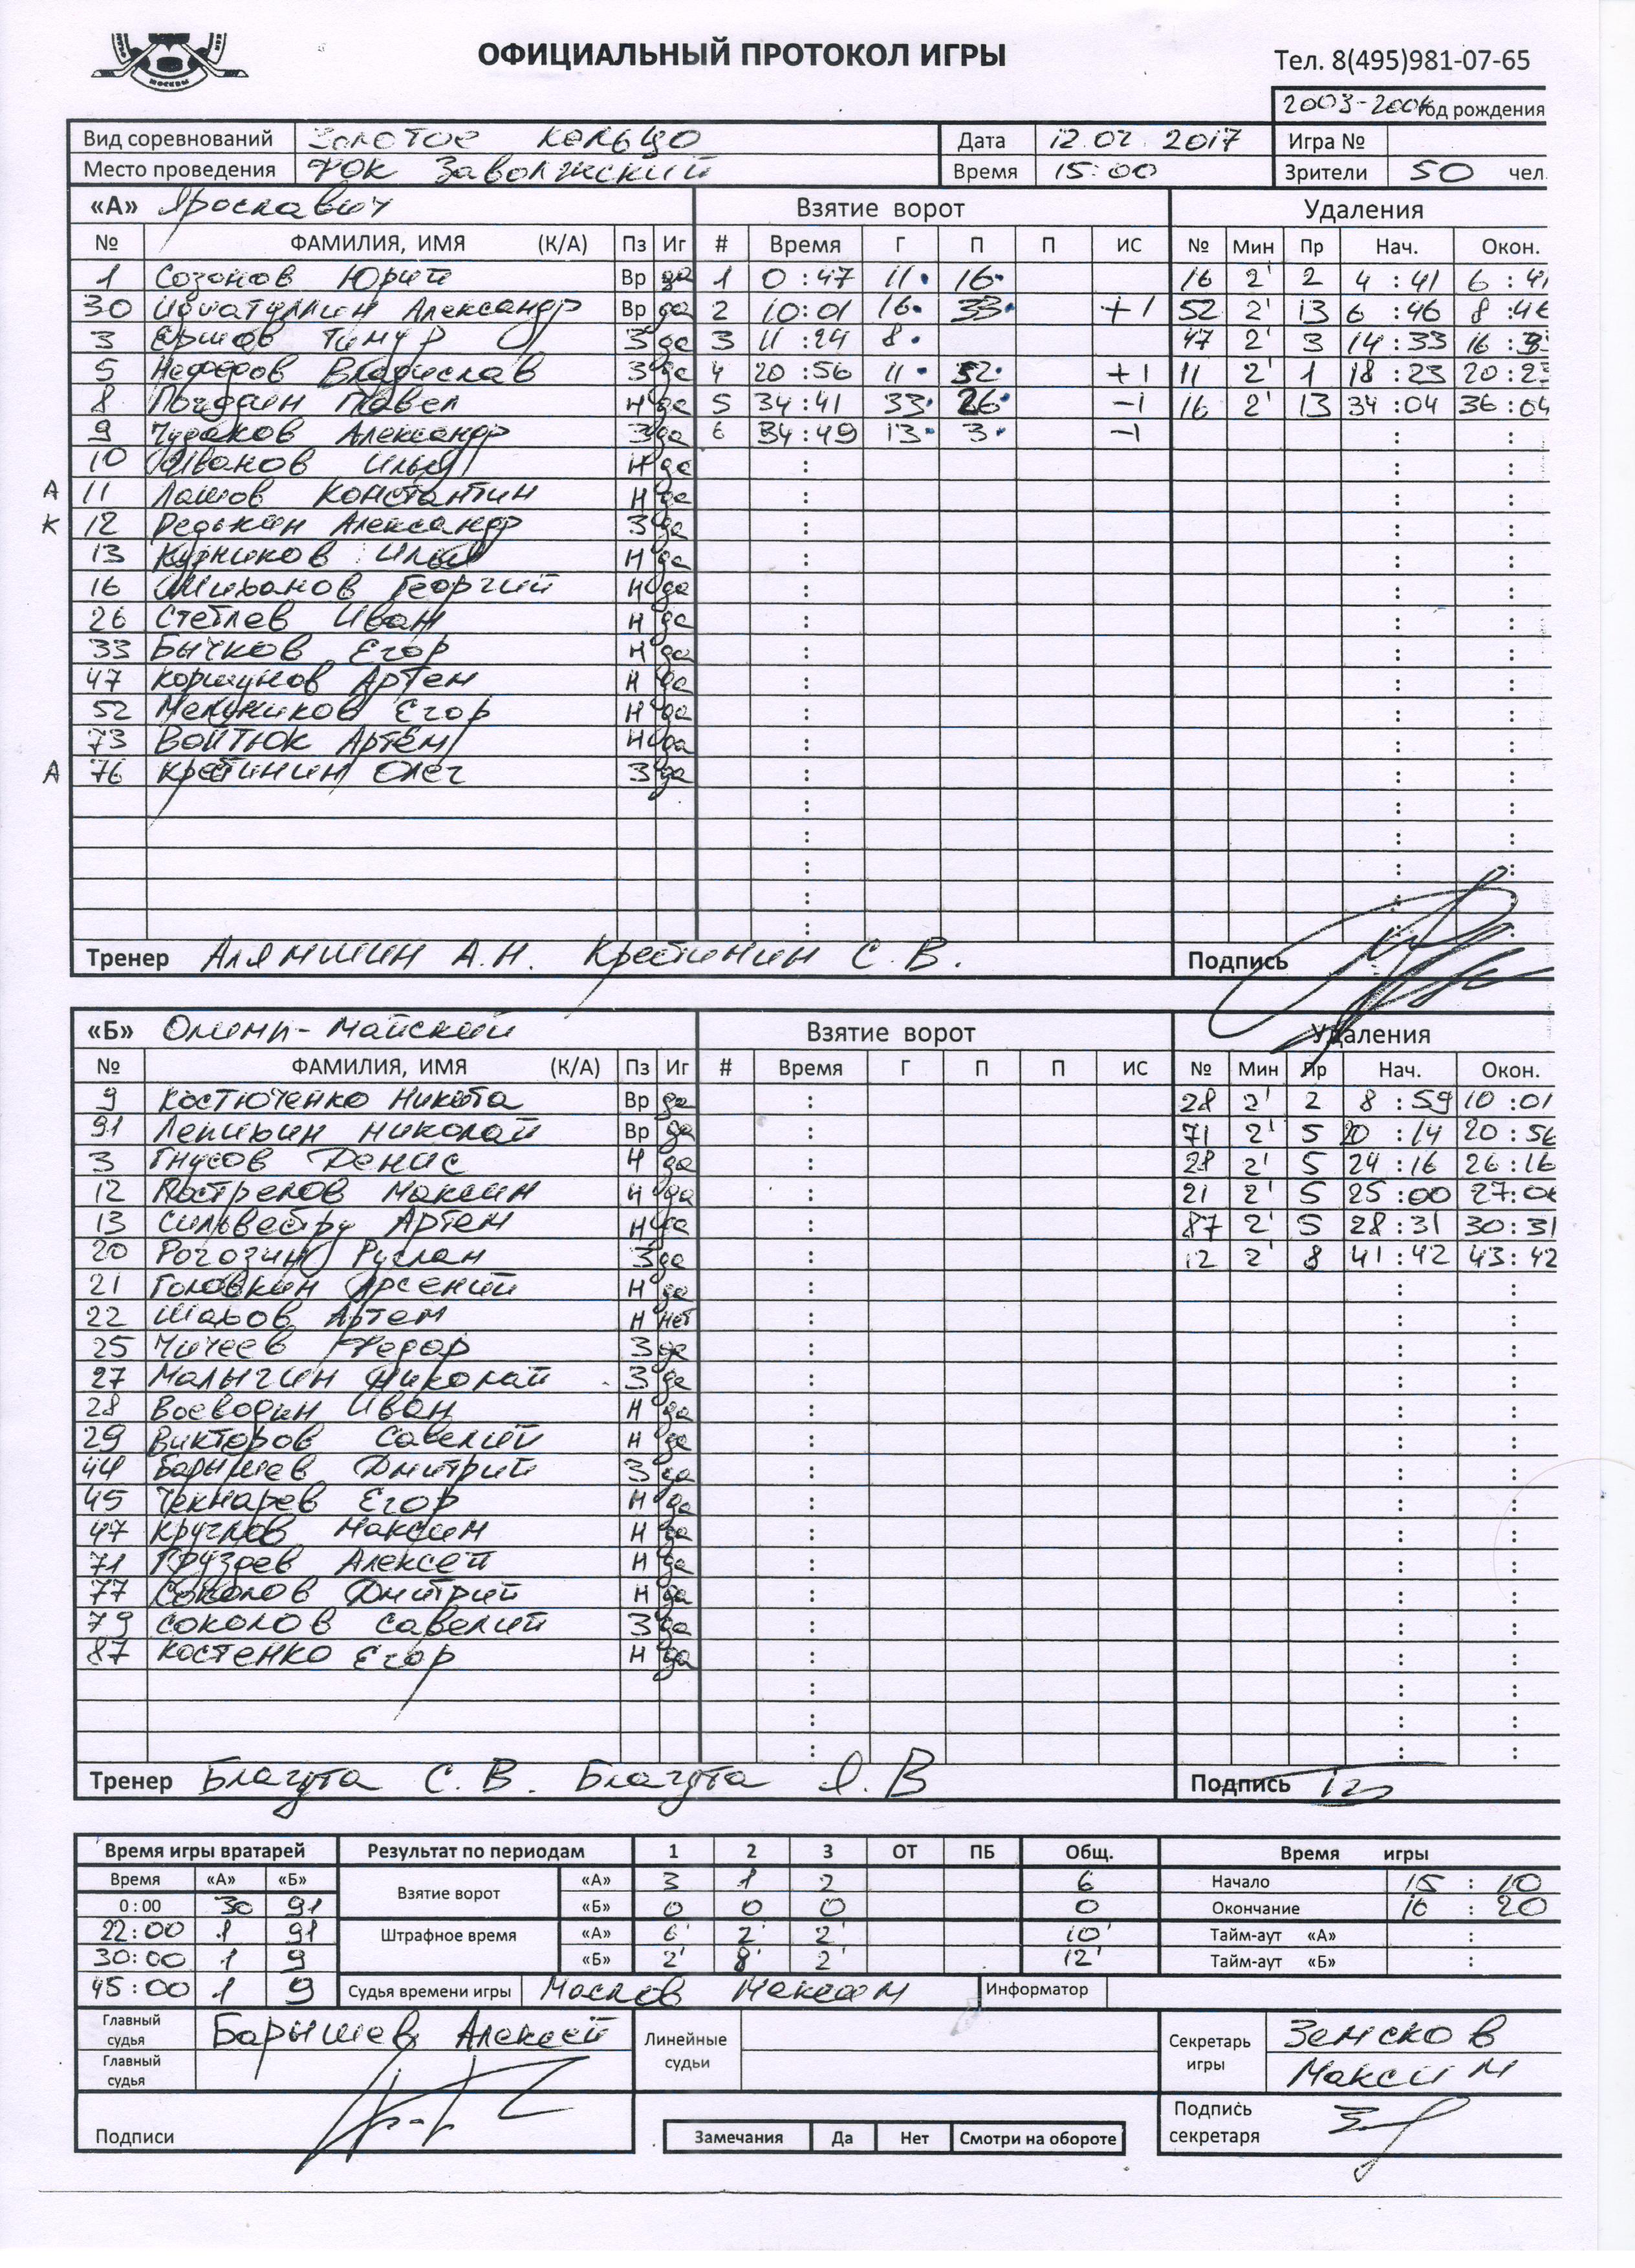 МОСКВЫ
ОФИЦИАЛЬНЫЙ ПРОТОКОЛ ИГРЫ
Тел. 8(495)981-07-65
2003-2004 год рождения
Вид соревнований Золотое кольцо Дата 12.02.2017 Игра №
Место проведения ФОК Заволжский Время 15:00 Зрители 50 чел.
«А» Ярославич Взятие ворот Удаления
№ ФАМИЛИЯ, ИМЯ (К/А) Пз Иг # Время Г П П ИС № Мин Пр Нач. Окон.
1 Созонов Юрий Вр да 1 0:47 11 16 16 2' 2 4:41 6:41
30 Александр Вр да 2 10:01 16 33 +1 52 2' 13 6:46 8:46
3 Ершов Тимур З да 3 11:24 8 47 2' 3 14:33 16:3
5 Нефедов Владислав З да 4 20:56 11 52 +1 11 2' 1 18:23 20:23
8 Павел Н да 5 34:41 33 26 -1 16 2' 13 34:04 36:04
9 Чудаков Александр З да 6 34:49 13 3 -1
10 Иванов Илья Н да
А 11 Лашов Константин Н да
К 12 Редькин Александр З да
13 Кузников Илья Н да
16 Георгий Н да
26 Стеглев Иван Н да
33 Бычков Егор Н да
47 Коршунов Артем Н да
52 Мельников Егор Н да
73 Войтюк Артём Н да
А 76 Кретинин Олег З да
Тренер Алямшин А.Н. Кретинин С.В. Подпись
«Б» Олимп-Майский Взятие ворот Удаления
№ ФАМИЛИЯ, ИМЯ (К/А) Пз Иг # Время Г П П ИС № Мин Пр Нач. Окон.
9 Костюченко Никита Вр да 28 2' 2 8:59 10:01
91 Лепихин Николай Вр да 71 2' 5 20:14 20:56
3 Гнусов Денис Н да 28 2' 5 24:16 26:16
12 Пострелов Максим Н да 21 2' 5 25:00 27:00
13 Сильвестру Артем Н да 87 2' 5 28:31 30:31
20 Рогозин Руслан З да 12 2' 8 41:42 43:42
21 Головкин Арсений Н да
22 Шахов Артем Н нет
25 Чичеев Федор З да
27 Малыгин Николай З да
28 Воеводин Иван Н да
29 Викторов Савелий Н да
44 Барышев Дмитрий З да
45 Чекмарев Егор Н да
47 Круглов Максим Н да
71 Груздев Алексей Н да
77 Соколов Дмитрий Н да
79 Соколов Савелий З да
87 Костенко Егор Н да
Тренер Благута С.В. Благута Я.В Подпись
Время игры вратарей Результат по периодам 1 2 3 ОТ ПБ Общ. Время игры
Время «А» «Б» Взятие ворот «А» 3 1 2 6 Начало 15:10
0:00 30 91 «Б» 0 0 0 0 Окончание 16:20
22:00 1 91 Штрафное время «А» 6' 2' 2' 10' Тайм-аут «А» :
30:00 1 9 «Б» 2' 8' 2' 12' Тайм-аут «Б» :
45:00 1 9 Судья времени игры Маслов Максим Информатор
Главный судья Барышев Алексей Линейные судьи Секретарь игры Земсков Максим
Главный судья
Подписи
Подпись секретаря
Замечания Да Нет Смотри на обороте